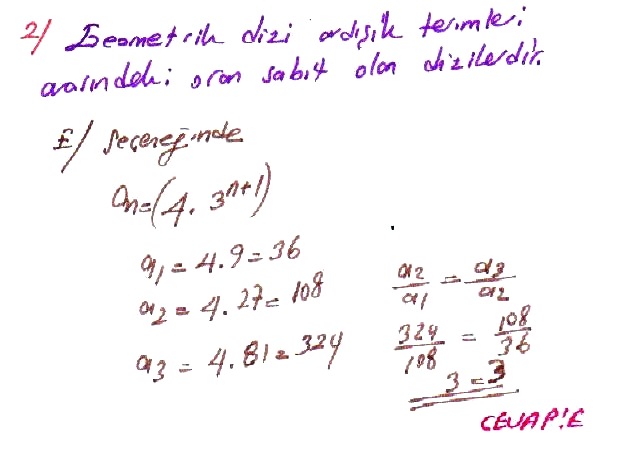 2/ Geometrik dizi ardışık terimleri
arasındaki oran sabit olan dizilerdir.
E/ seçeneğinde
an=(4.3^{n+1})
a1 = 4.9=36
a2 = 4.27= 108
a3 = 4.81=324
a2/a1 = a3/a2
324/108 = 108/36
3=3
CEVAP:E